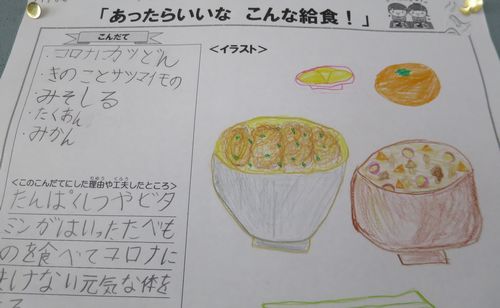 「あったらいいな こんな給食！」
こんだて
・コロナカツどん
・きのことサツマイモの
みそしる
・たくあん
・みかん
<イラスト>
<このこんだてにした理由や工夫したところ>
りゆう くふう
たんぱくしつやビタ
ミンがはいったたべも
のを食べてコロナに
まけない元気な体を